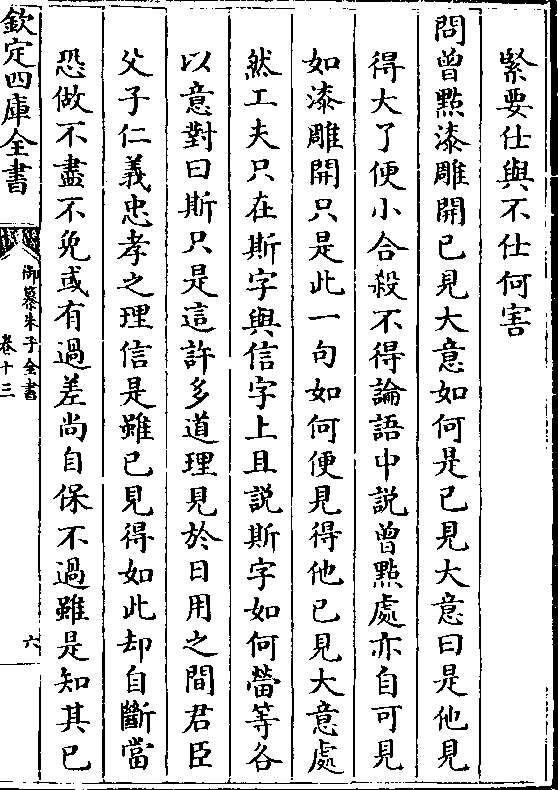 緊要仕與不仕何害
問曾㸃漆雕開已見大意如何是已見大意曰是他見
得大了便小合殺不得論語中説曾㸃處亦自可見
如漆雕開只是此一句如何便見得他已見大意處
然工夫只在斯字與信字上且説斯字如何䕃等各
以意對曰斯只是這許多道理見於日用之間君臣
父子仁義忠孝之理信是雖已見得如此却自斷當
恐做不盡不免或有過差尚自保不過雖是知其已
欽定四庫全書
御纂朱子全書
卷十三
六